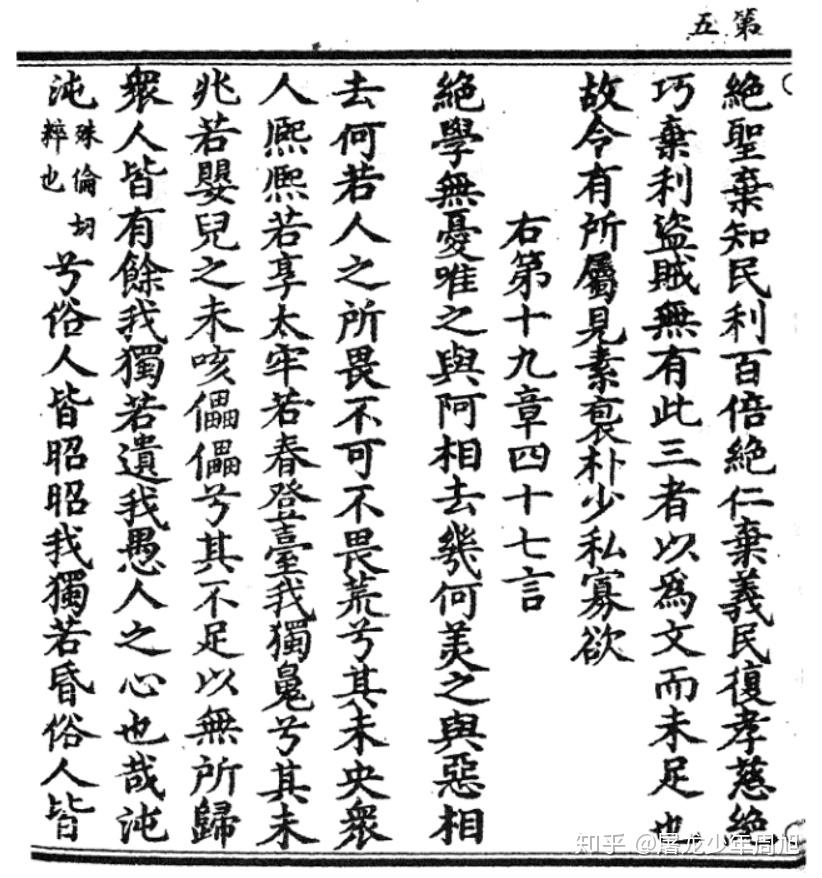 第五
絕聖棄知民利百倍絕仁棄義民復孝慈絕
巧棄利盜賊無有此三者以為文而未足也
故令有所屬見素袌朴少私寡欲
右第十九章四十七言
絕學無憂唯之與阿相去幾何美之與惡相
去何若人之所畏不可不畏荒兮其未央衆
人熙熙若享太牢若春登臺我獨兮其未
兆若嬰兒之未咳儡儡兮其不足以無所歸
衆人皆有餘我獨若遺我愚人之心也哉沌
沌殊倫切粹也兮俗人皆昭昭我獨若昏俗人皆
知乎 @屠龙少年周旭